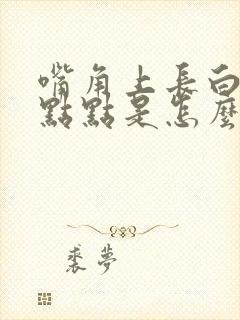 嘴角上長白
點點是怎麼
裘夢